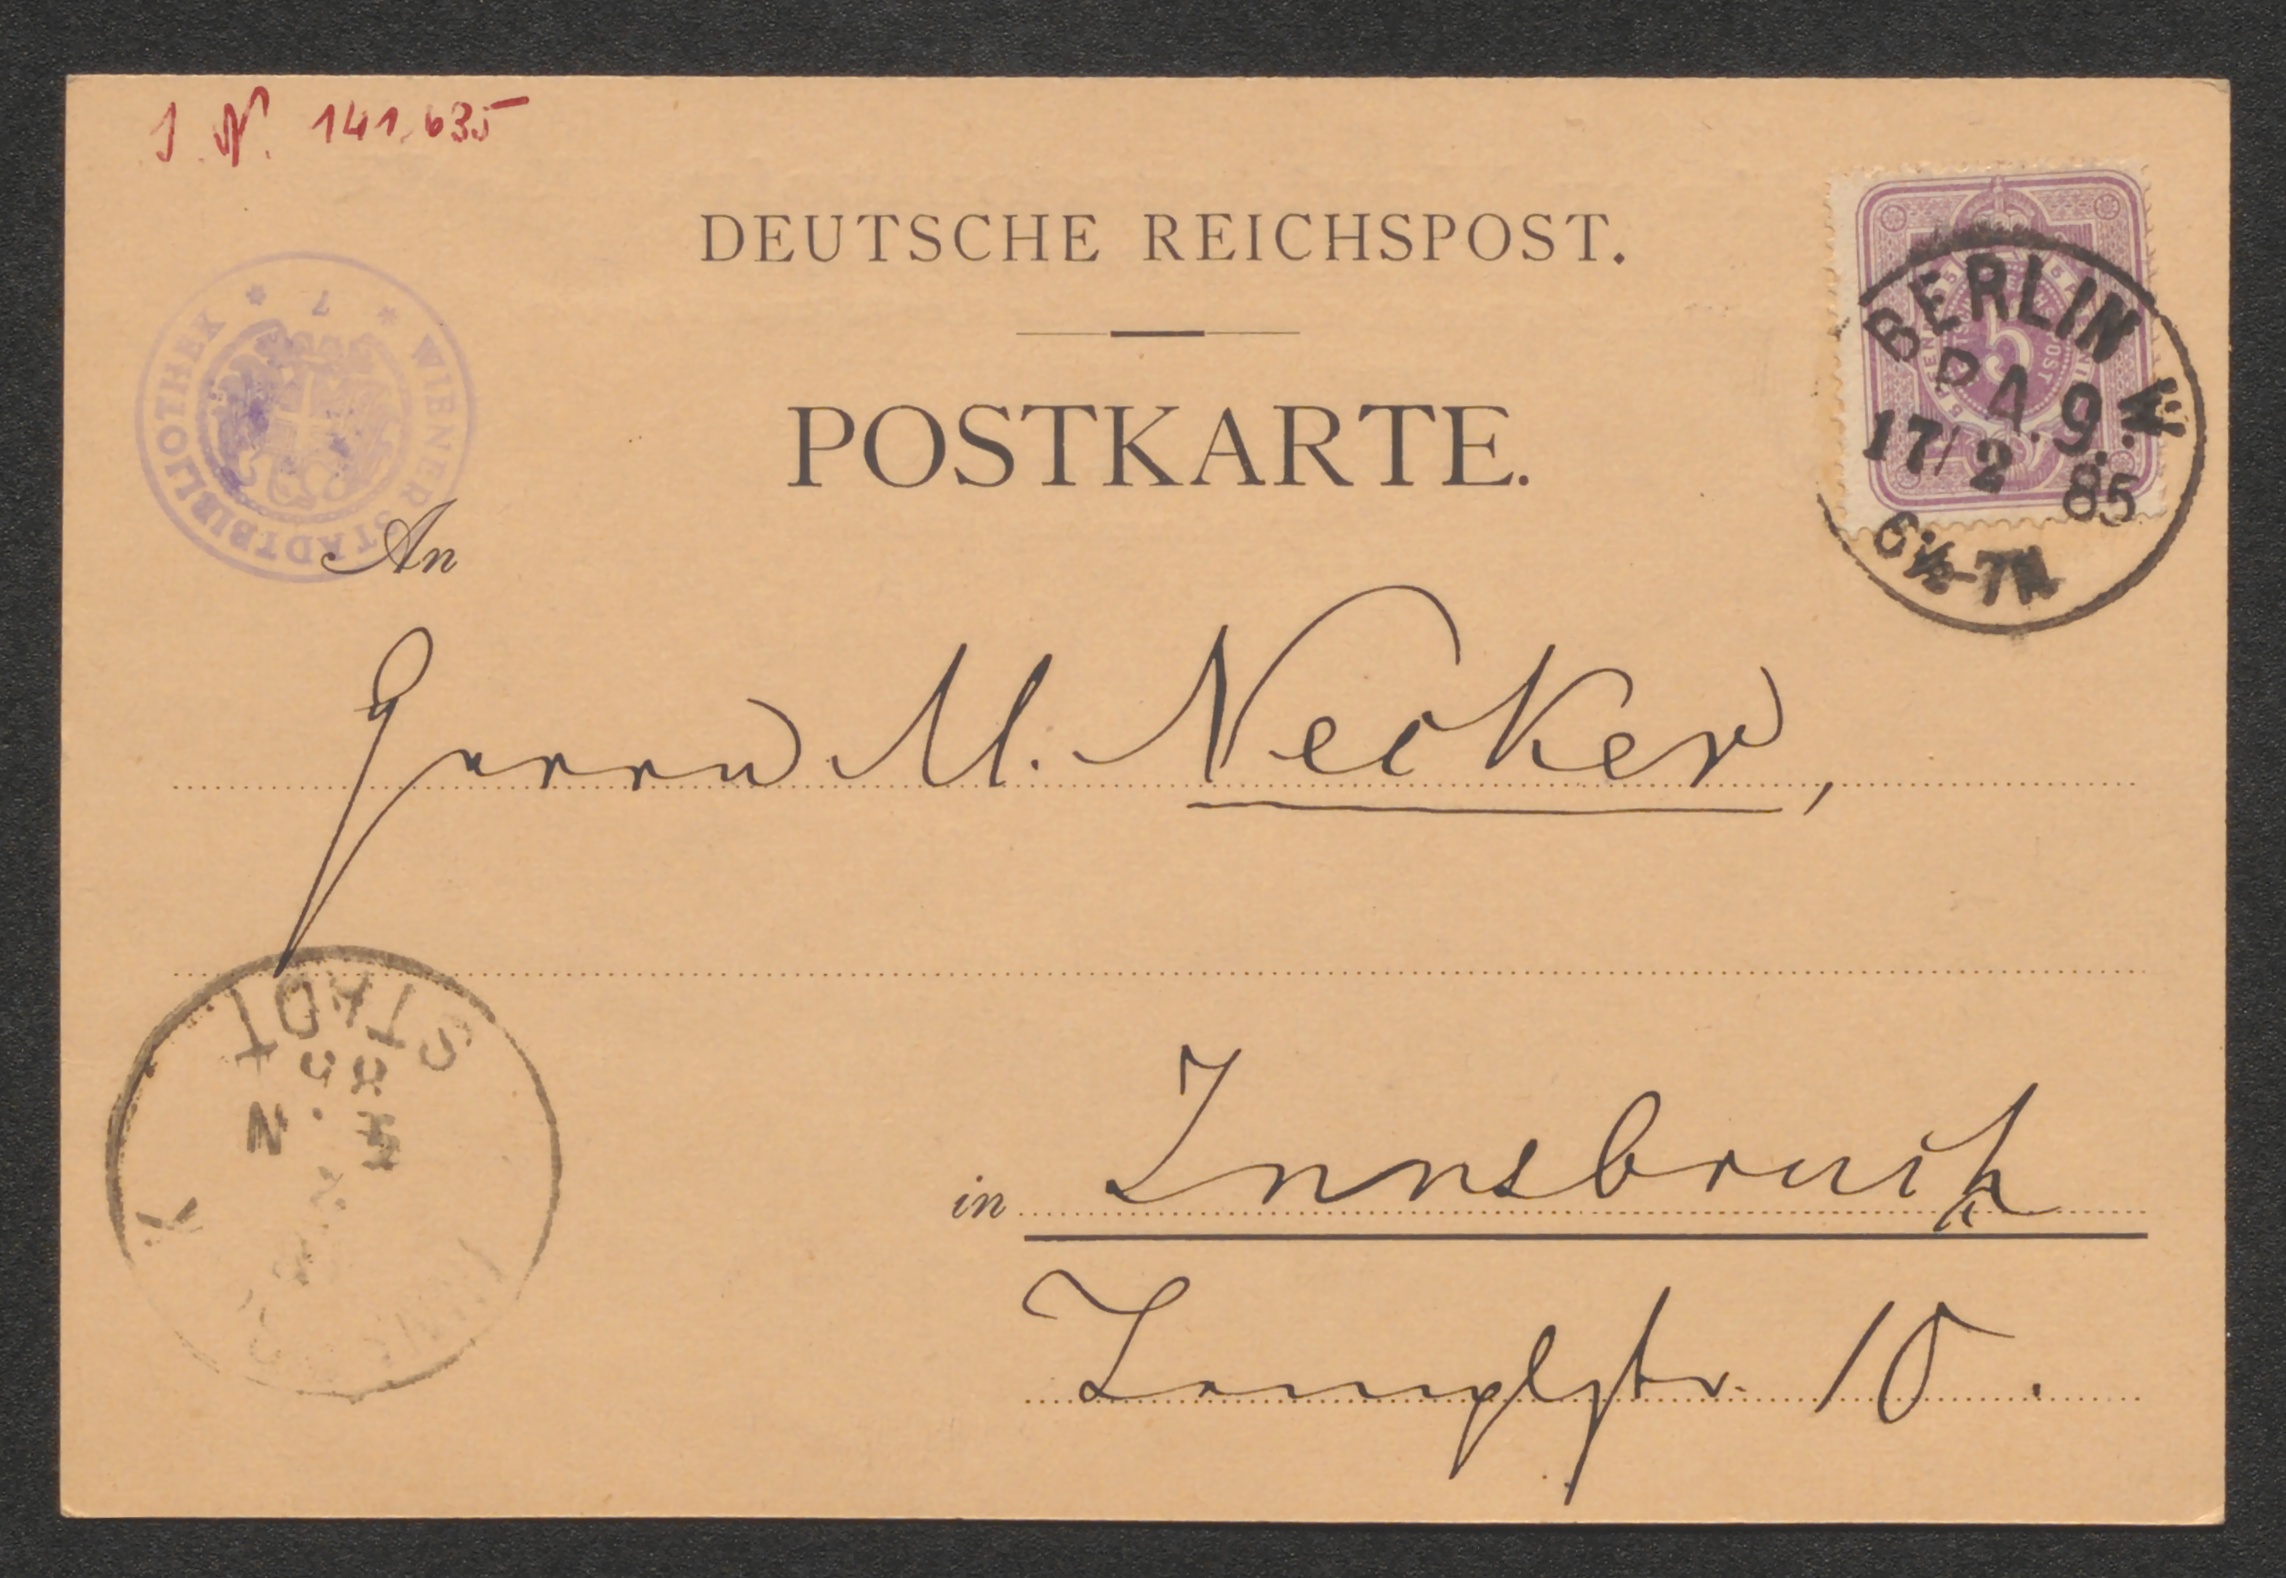 J. N. 141.635
DEUTSCHE REICHSPOST.
POSTKARTE.
WIENER STADTBIBLIOTHEK
7
5
BERLIN W
P.A. 9.
17/2 85
6½-7N.
An
Herrn M. Necker,
in Innsbruck
10.
STADT
85
N
K